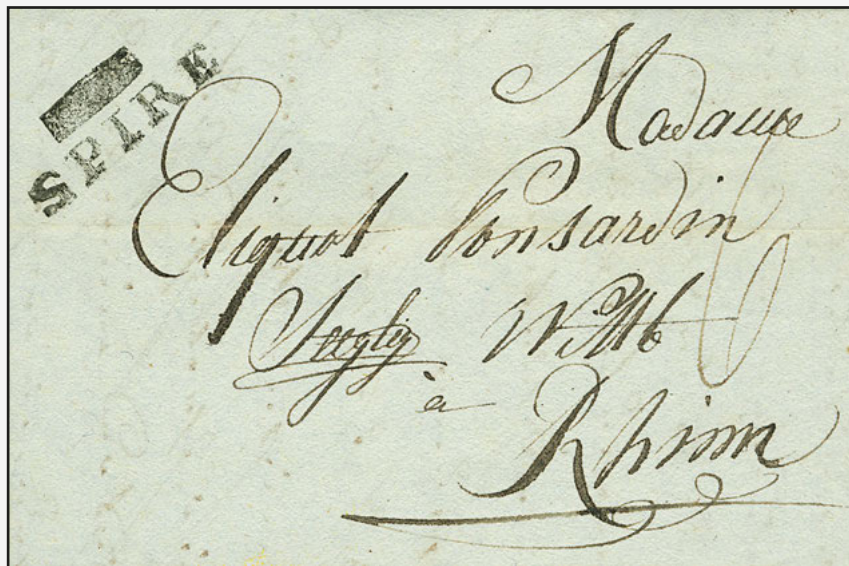 SPIRE
Madame
Cliquot Ponsardin
à
Rheims